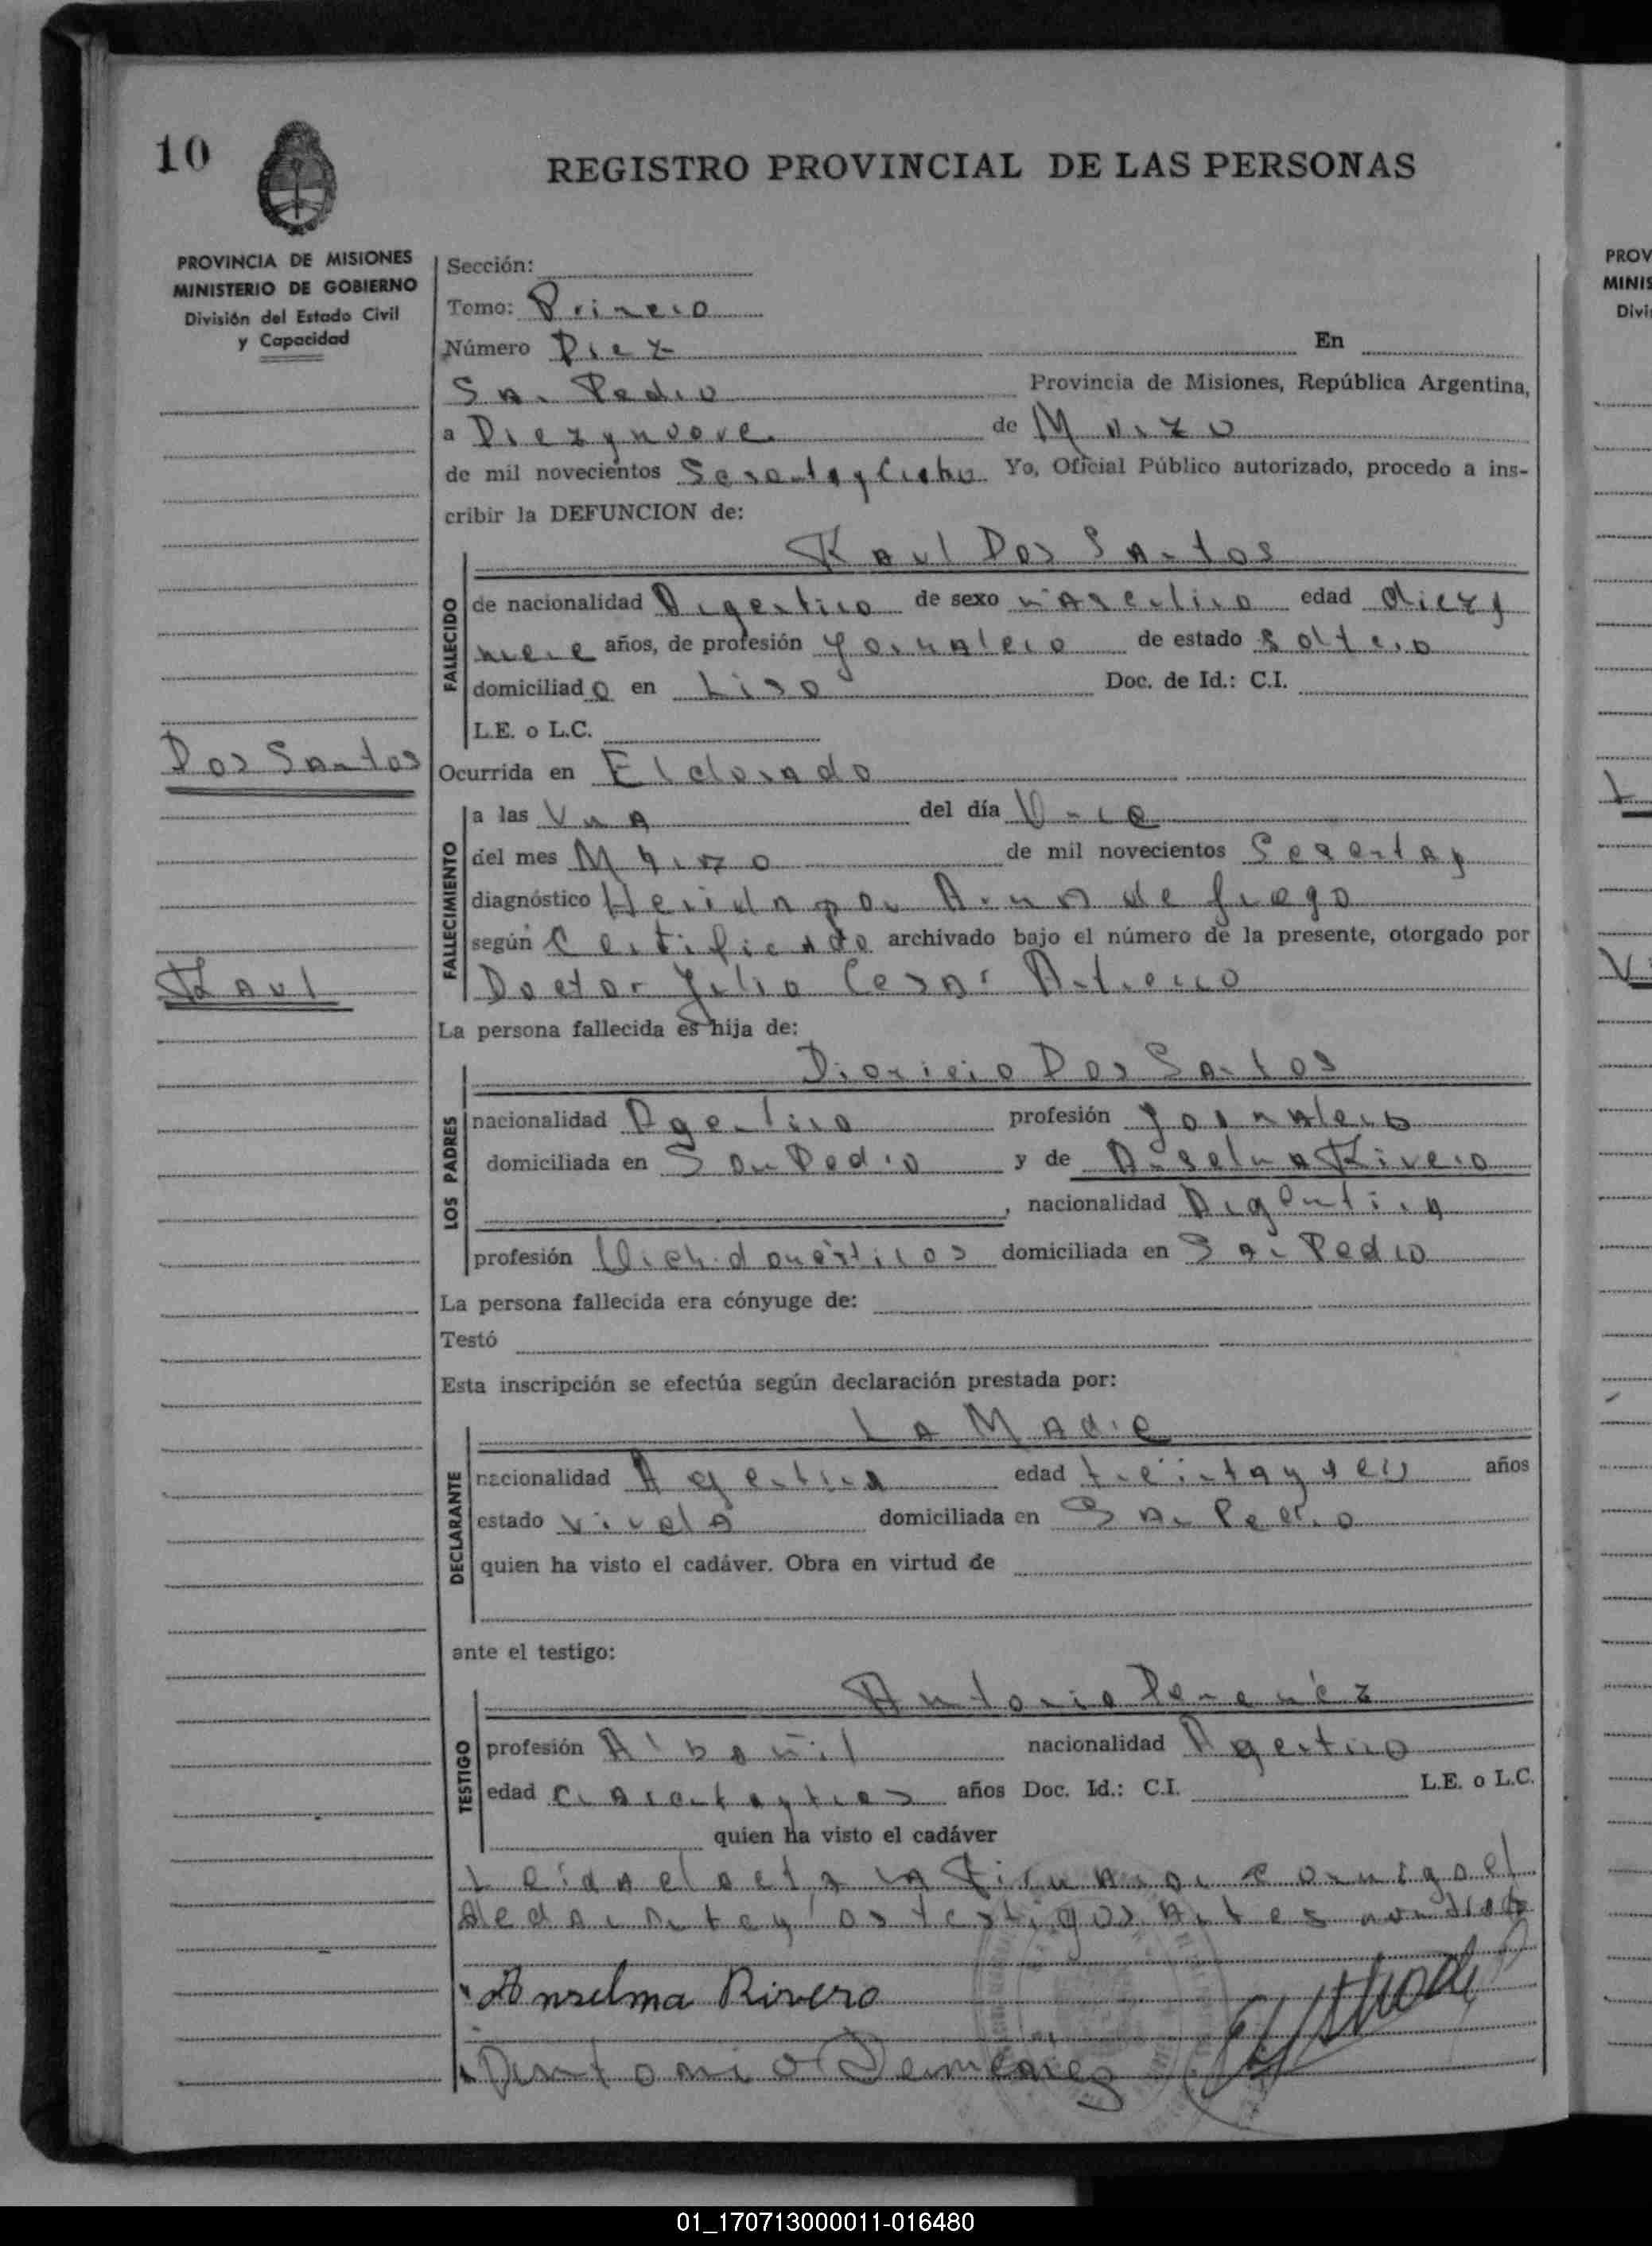 10
REGISTRO PROVINCIAL DE LAS PERSONAS
PROVINCIA DE MISIONES
MINISTERIO DE GOBIERNO
División del Estado Civil
y Capacidad
Sección:
Tomo: Primero
Número Diez En
San Pedro Provincia de Misiones, República Argentina,
a Diezynueve de Marzo
de mil novecientos Sesentay Yo, Oficial Público autorizado, procedo a ins-
cribir la DEFUNCION de:
Raul Dos Santos
FALLECIDO
de nacionalidad Argentino de sexo masculino edad diezy
años, de profesión Jornalero de estado soltero
domiciliado en Doc. de Id.: C.I.
L.E. o L.C.
Dos Santos
Ocurrida en Eldorado
FALLECIMIENTO
a las Una del día Once
del mes Marzo de mil novecientos Sesentay
diagnóstico Herida por Arma de fuego
según Certificado archivado bajo el número de la presente, otorgado por
Doctor Julio Cesar
Raul
La persona fallecida es hija de:
Dionicio Dos Santos
LOS PADRES
nacionalidad Argentino profesión Jornalero
domiciliada en San Pedro y de Anselma Rivero
, nacionalidad Argentina
profesión domésticos domiciliada en San Pedro
La persona fallecida era cónyuge de:
Testó
Esta inscripción se efectúa según declaración prestada por:
La Madre
DECLARANTE
nacionalidad Argentina edad treintayseis años
estado viuda domiciliada en San Pedro
quien ha visto el cadáver. Obra en virtud de
ante el testigo:
TESTIGO
Antonio
profesión Albañil nacionalidad Argentino
edad cuarentaytres años Doc. Id.: C.I. L.E. o L.C.
quien ha visto el cadáver
Leída el acta la firman por conmigo el
y los testigos Antes
Anselma Rivero
Antonio
PROV
MINIS
Divi
01_170713000011-016480